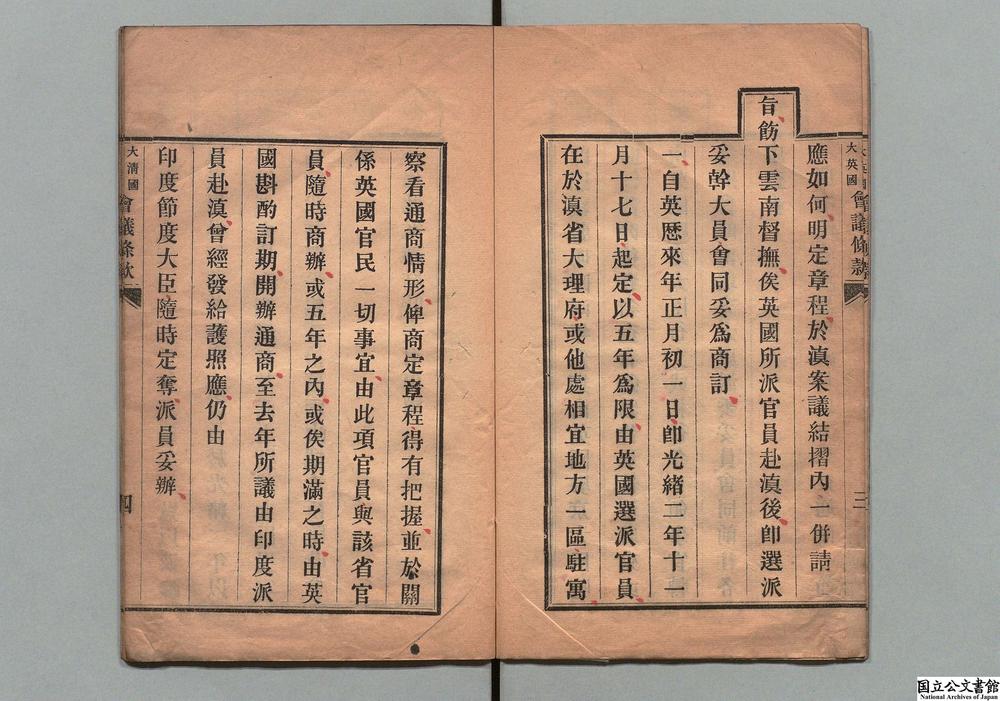 大英國
會議條款
三
應如何明定章程於滇案議結摺內一併請
旨飭下雲南督撫俟英國所派官員赴滇後卽選派
妥幹大員會同妥爲商訂
一自英歷來年正月初一日卽光緒二年十一
月十七日起定以五年爲限由英國選派官員
在於滇省大理府或他處相宜地方一區駐寓
察看通商情形俾商定章程得有把握並於關
係英國官民一切事宜由此項官員與該省官
員隨時商辦或五年之內或俟期滿之時由英
國斟酌訂期開辦通商至去年所議由印度派
員赴滇曾經發給護照應仍由
印度節度大臣隨時定奪派員妥辦
大清國
會議條款
四
国立公文書館
National Archives of Japan